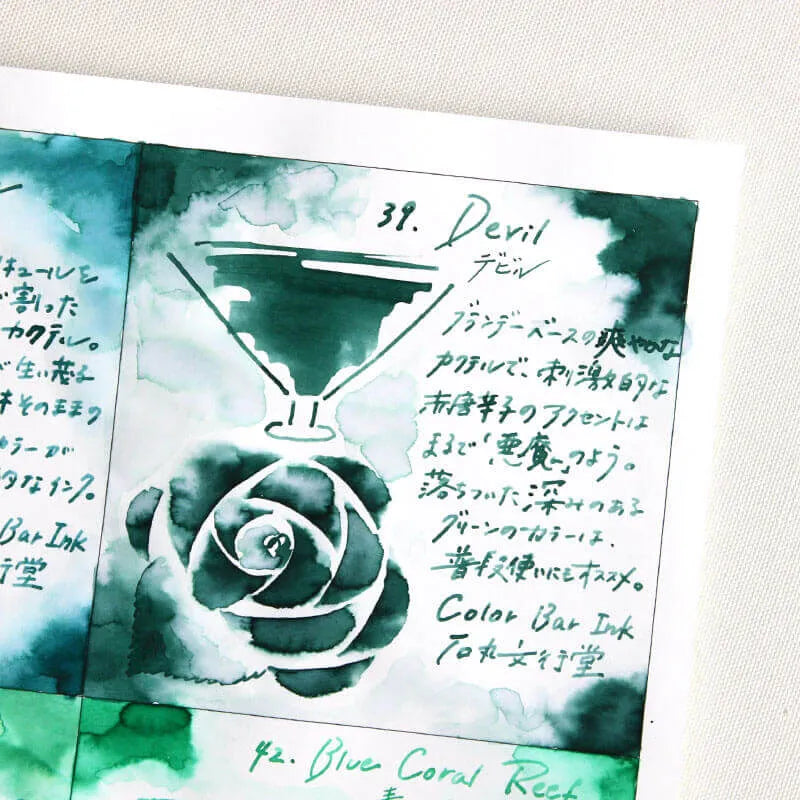 キュールを
割った
カクテル。
そのままの
カラーが
なインク。
Bar Ink
行堂
39. Devil
デビル
ブランデーベースの爽やかな
カクテルで、刺激的な
赤唐辛子のアクセントは
まるで「悪魔」のよう。
落ちついた深みのある
グリーンのカラーは、
普段使いにもオススメ。
Color Bar Ink
石丸文行堂
42. Blue Coral Reef